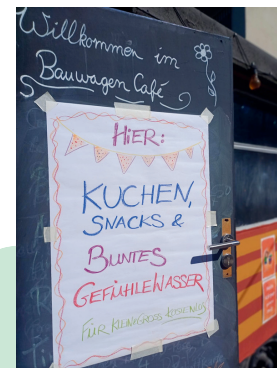 Willkommen im
Bauwagen Café
HIER:
KUCHEN,
SNACKS &
BUNTES
GEFÜHLEWASSER
FÜR KLEIN, GROSS,